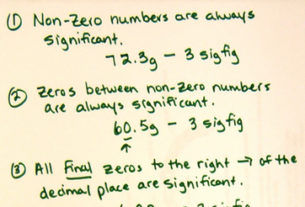 ① Non-Zero numbers are always
significant.
72.3g - 3 sigfig
② Zeros between non-zero numbers
are always significant.
60.5g - 3 sigfig
③ All Final zeros to the right → of the
decimal place are significant.